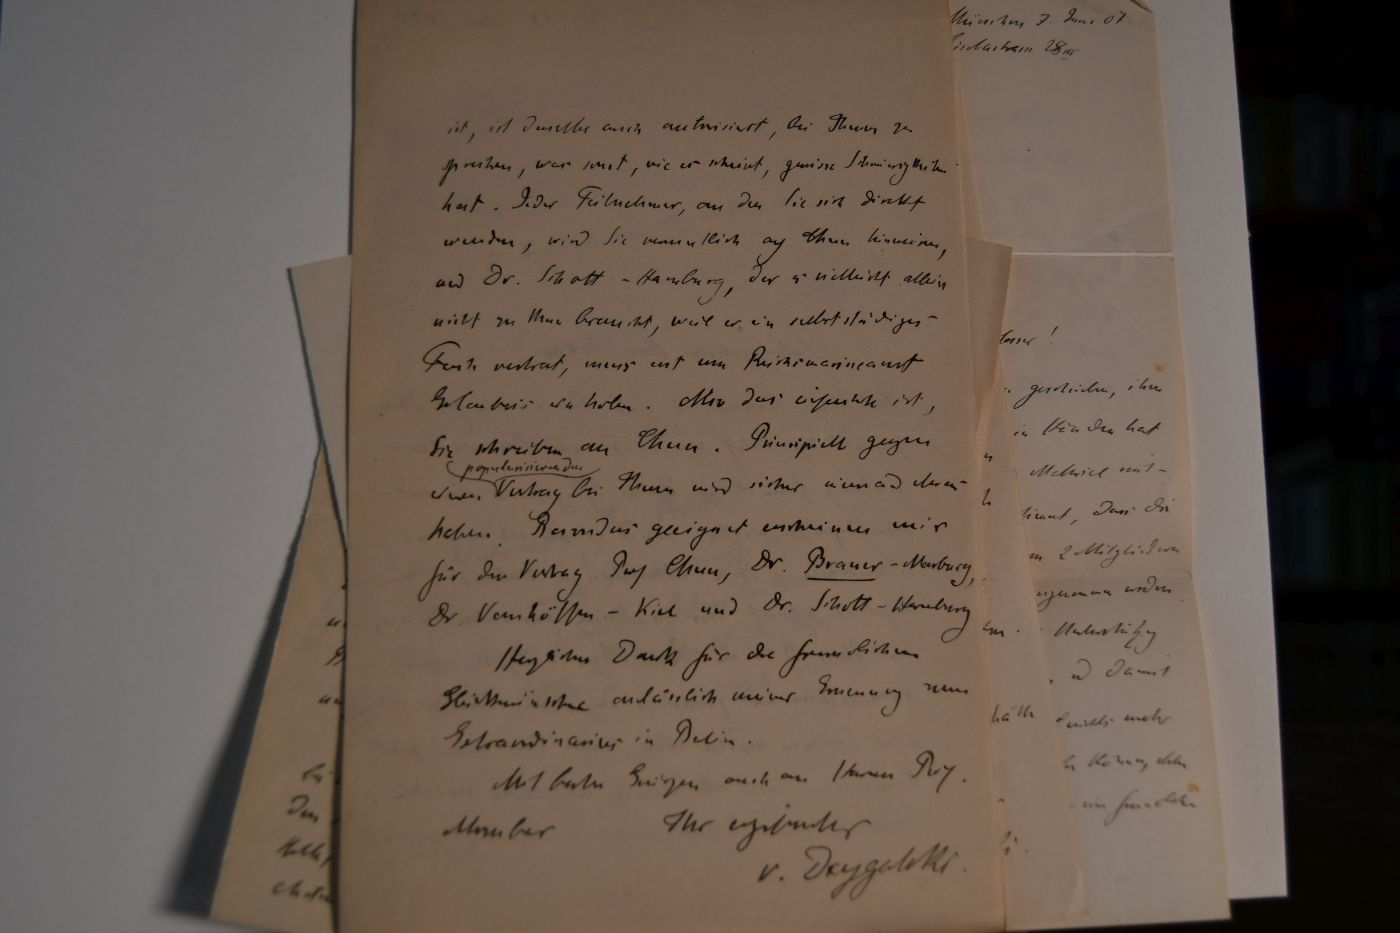 ist, ist derselbe auch autorisiert, bei Ihnen zu
sprechen, was sonst, wie es scheint, gewisse Schwierigkeiten
hat. Jeder Teilnehmer, an den Sie sich direkt
wenden, wird Sie vermutlich auf Chun hinweisen,
und Dr. Schott - Hamburg, der es vielleicht allein
nicht zu thun braucht, weil er ein selbstständiges
Fach vertrat, muss erst um Reichsmarineamt
Erlaubnis einholen. Also das einfachste ist,
Sie schreiben an Chun. Principiell gegen
popularisierenden
einen Vortrag bei Ihnen wird sicher niemand etwas
haben. Besonders geeignet erscheinen mir
für den Vortrag Prof. Chun, Dr. Brauer - Marburg,
Dr. Vanhöffen - Kiel und Dr. Schott - Hamburg
Herzlichen Dank für die freundlichen
Glückwünsche anlässlich meiner Ernennung zum
Extraordinarius in Berlin.
Mit besten Grüssen auch an Herrn Prof.
Ihr ergebenster
v. Drygalski.
München 7. Juni 07
28 III
geschrieben, ihm
in Händen hat
Material mit-
dass die
2 Mitgliedern
Unterstützung
damit
hätte
mehr